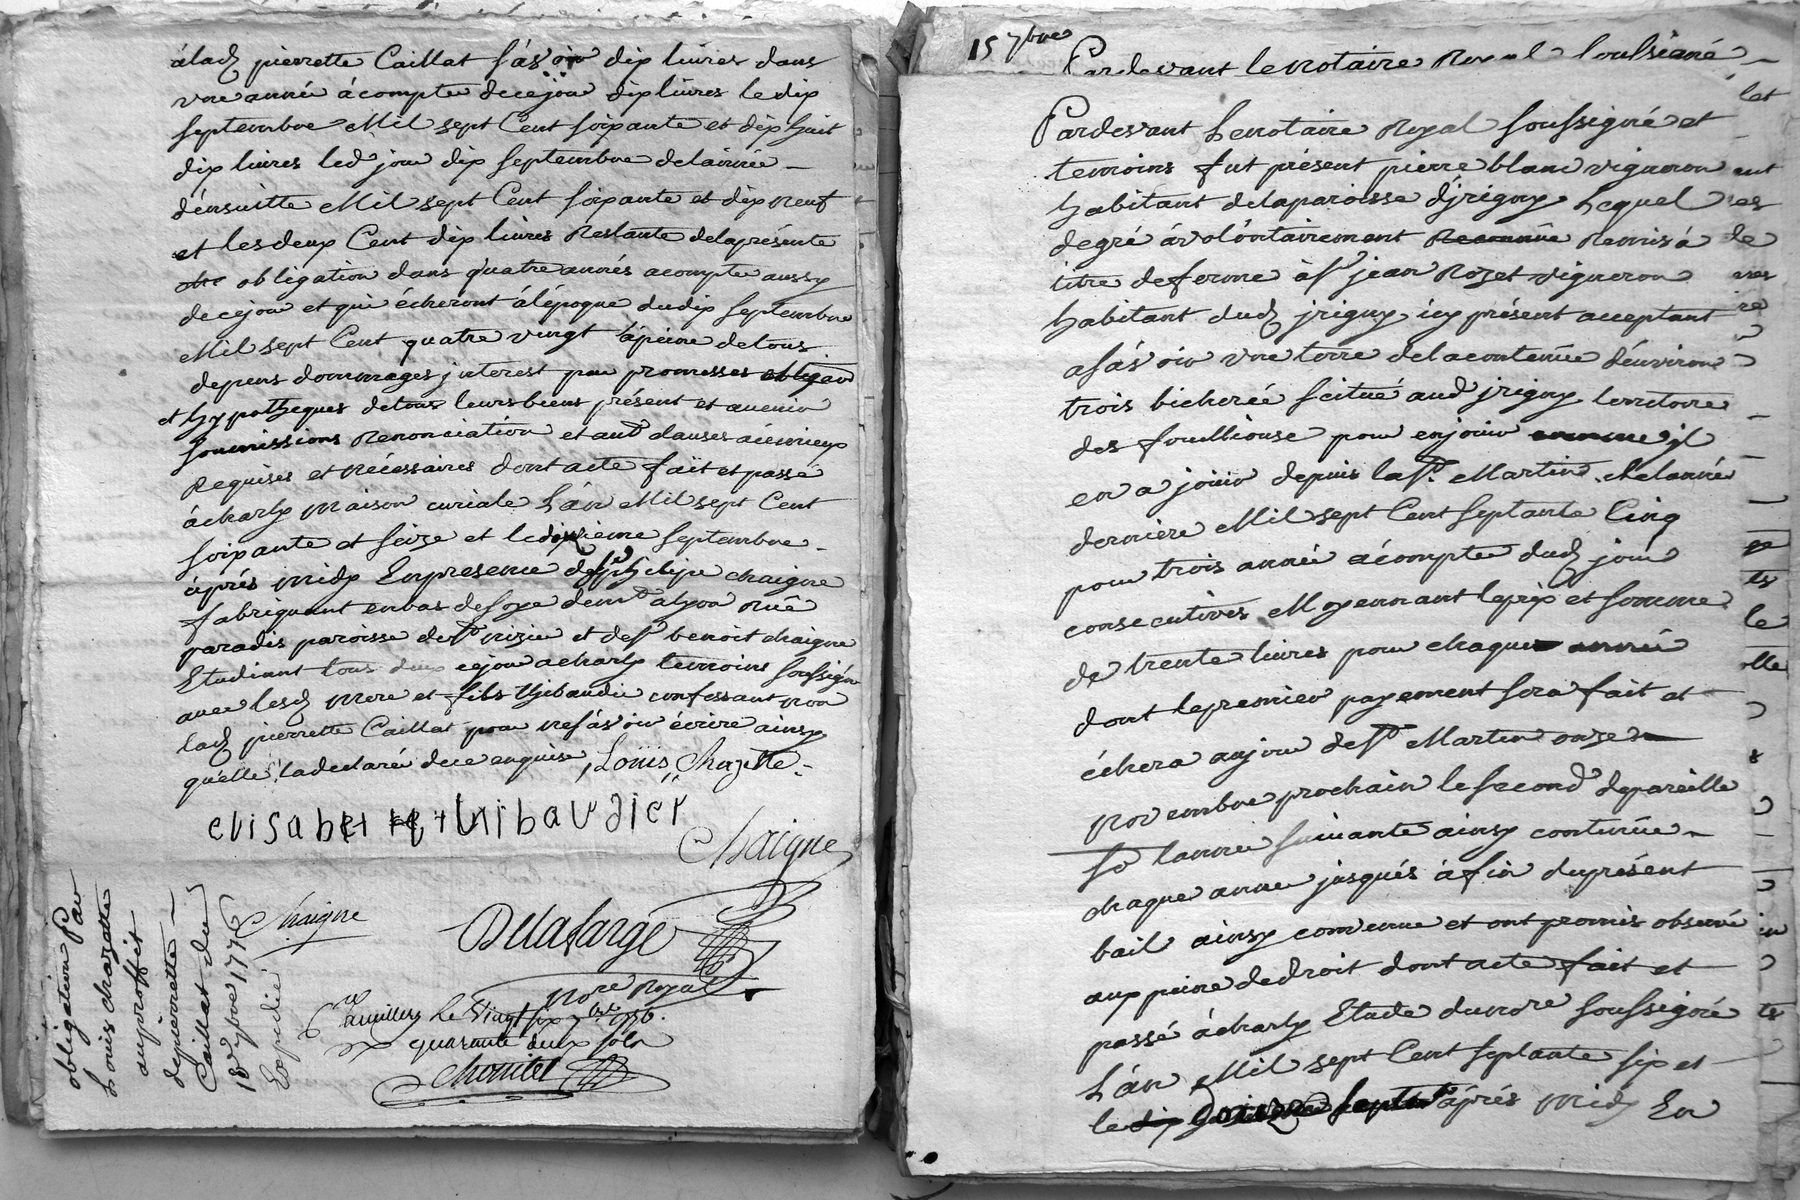 àlad pierrette Caillat sçavoir dix livres dans
une année à compter decejour dix livres le dix
septembre Mil sept Cent soixante et dix huit
dix livres led jour dix septembre delannée
d'ensuitte Mil sept Cent soixante et dix neuf
et les deux Cent dix livres Restante delaprésente
obligation dans quatre annés acompter aussy
decejour et qui écheront àlépoque dudix septembre
Mil sept Cent quatre vingt àpeine detous
depens dommages jnterest par promesses obligaon
et hypotheques detous leurs biens présent et avenir
soumissions Renonciation et autr clauses
Requises et Nécessaires dont acte fait et passé
àcharly maison curiale L'an Mil sept Cent
soixante et seize et le dixième septembre
après midy En presence de sr philipe chaigne
fabriquant en bas de soye demt alyon rüe
paradis paroisse de st nizier et de sr benoit chaigne
Etudiant tous deux cejour acharly temoins soussigné
avec lesd mere et fils thibaudier confessant non
lad pierrette Caillat pour nesçavoir écrire ainsy
quelle la declaré dece enquise, Louis Chazotte
elisabet thibaudier
Chaigne
Chaigne
Delafarge
Nore Royal
Cé a vuillers le Vingt six 7bre 1776.
Rx quarante deux sols
Chomitel
obligation Par
Louis chazotte
auproffit
depierrette
Caillat du
10 7bre 1776
Expédié
15 7bre
Pardevant lenotaire Royal soussigné
Pardevant Lenotaire Royal soussigné et
temoins fut présent pierre blanc vigneron
habitant delaparoisse d'jrigny Lequel
degré àvolontairement Remis à
titre deferme à sr jean Rozet vigneron
habitant dud jrigny icy présent acceptant
asçavoir une terre delacontenüe d'environ
trois bicherée scitué aud jrigny territoire
des fouilliouse pour enjouir comme il
en a jouir depuis la st. Martin delannée
dernière Mil sept Cent septante Cinq
pour trois année àcompter dud jour
consecutives Moyennant leprix et somme
de trente livres pour chaque année
dont lepremier payement sera fait et
échera aujour de st Martin onze
novembre prochain le second de pareille
so lannée suivante ainsy continüé
chaque année jusqués àfin duprésent
bail ainsy convenue et ont promis observé
aux peine dedroit dont acte fait et
passé àcharly Etude dunore soussigné
L'an Mil sept Cent septante six et
le dix septe après midy En